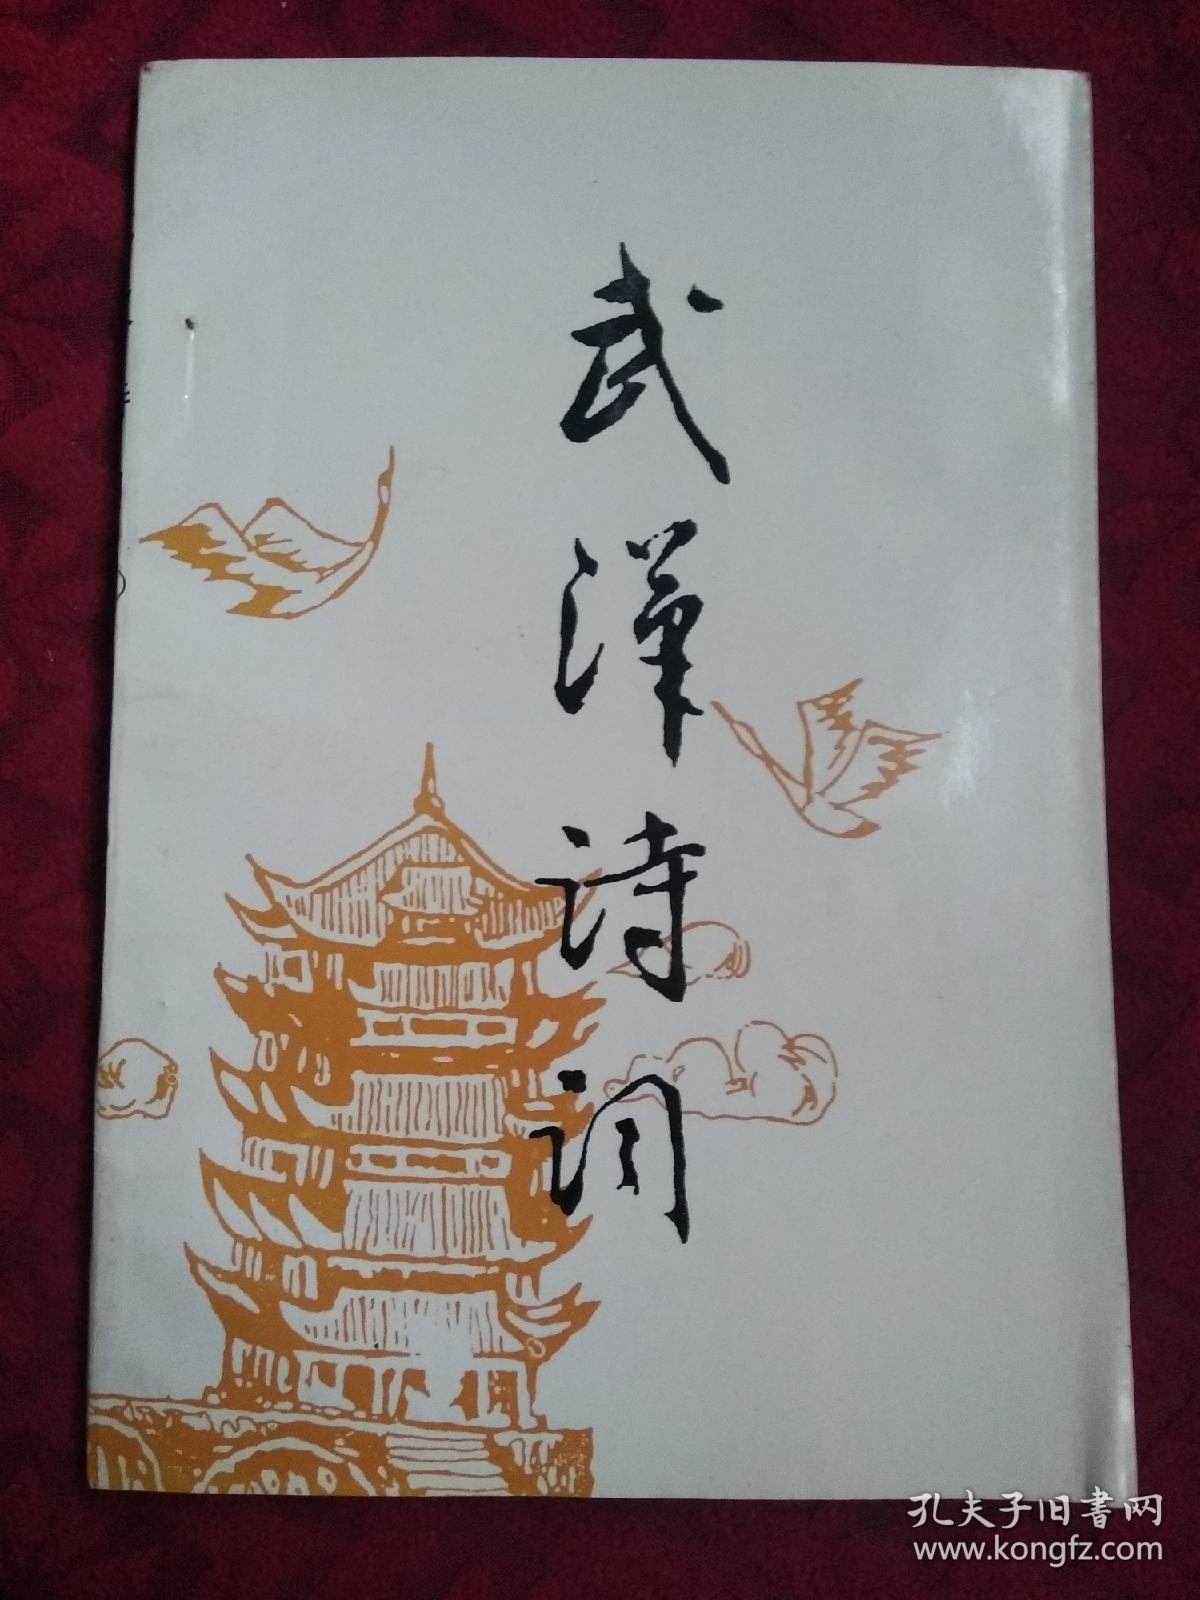 武漢诗词
孔夫子旧书网
www.kongfz.com